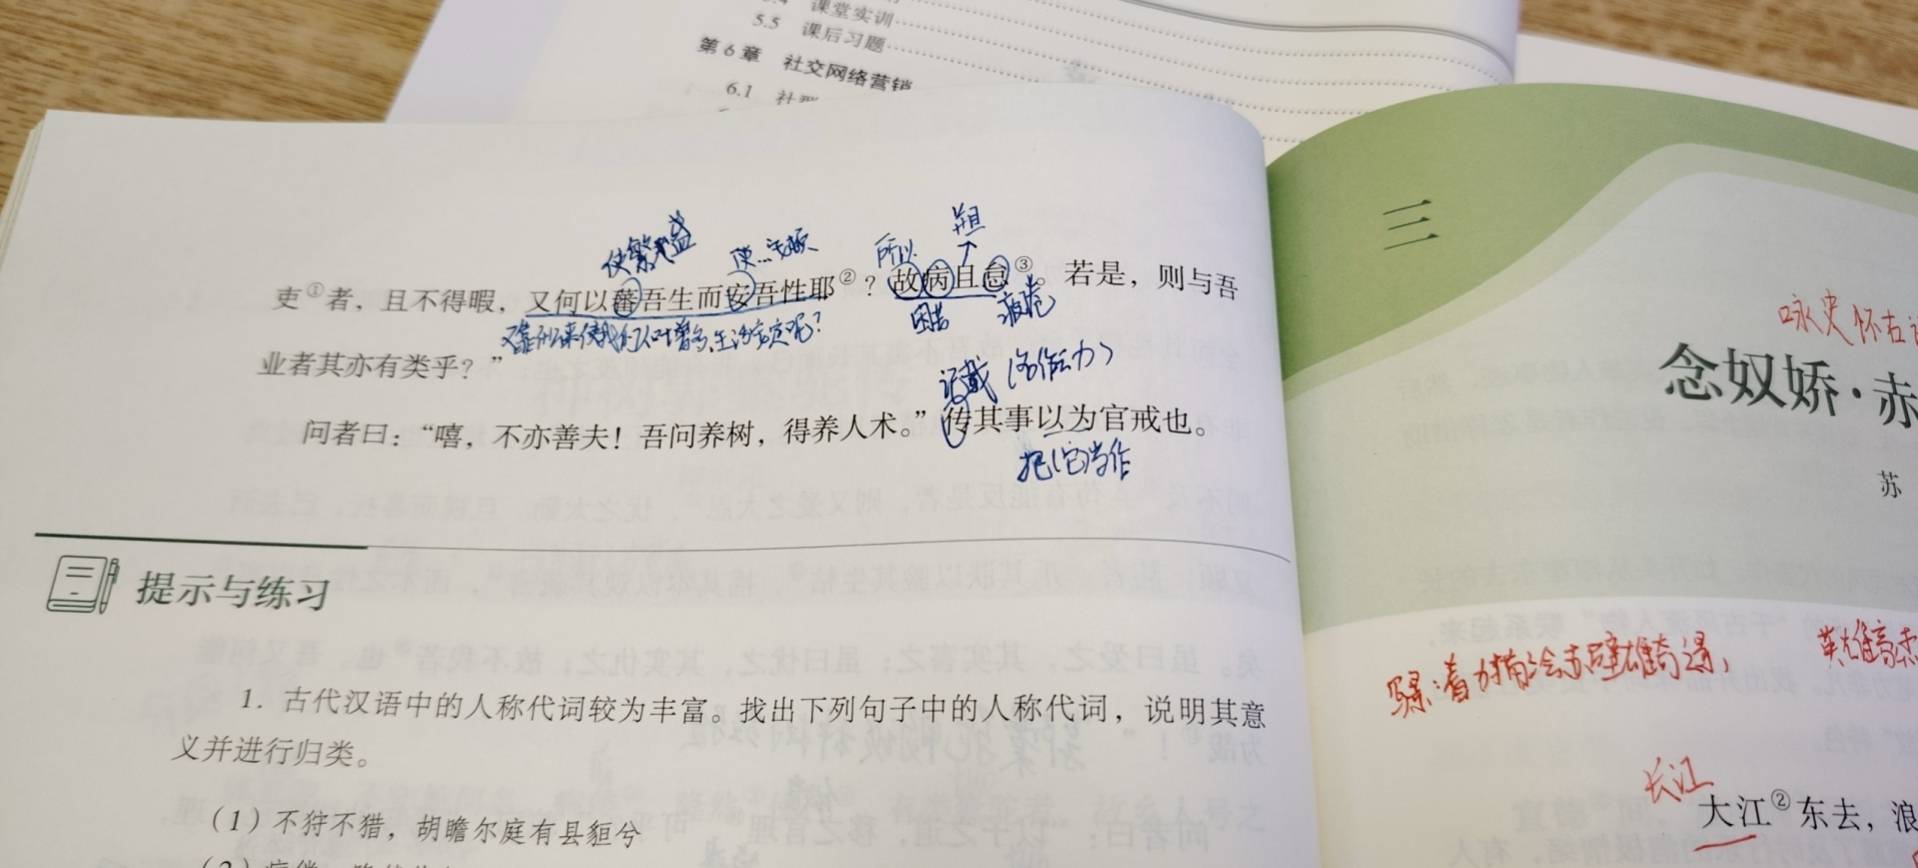 课堂实训
5.5 课后习题
第6章 社交网络营销
6.1
使繁盛
所以
吏①者，且不得暇，又何以蕃吾生而安吾性耶②？故病且怠③。若是，则与吾
困苦
疲倦
业者其亦有类乎？”
记载（名作动）
问者曰：“嘻，不亦善夫！吾问养树，得养人术。”传其事以为官戒也。
把（它）当作
提示与练习
1. 古代汉语中的人称代词较为丰富。找出下列句子中的人称代词，说明其意
义并进行归类。
(1) 不狩不猎，胡瞻尔庭有县貆兮
三
咏史怀古
念奴娇·赤
苏
景：着力描绘赤壁雄奇
英雄豪杰
长江
大江②东去，浪